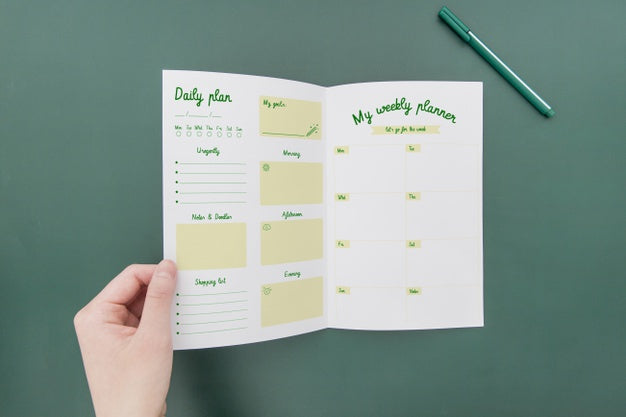 Daily plan
__/__/__
Mon Tue Wed Thu Fri Sat Sun
Urgently
Notes & Doodles
Shopping list
My goals:
Morning
Afternoon
Evening
My weekly planner
Let's go for the week
Mon Tue
Wed Thu
Fri Sat
Sun Notes